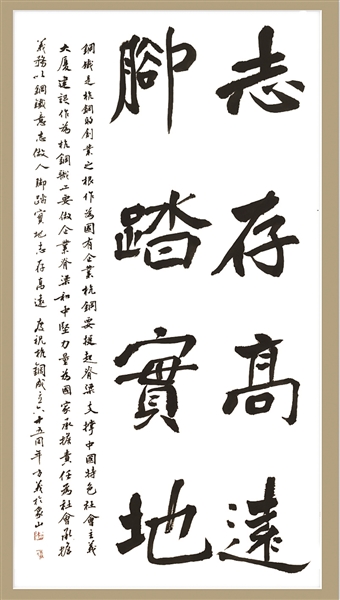 志存高遠
腳踏實地
鋼鐵是杭鋼的創業之根作為國有企業杭鋼要挺起脊梁支撐中國特色社會主義
大廈建設作為杭鋼職工要做企業脊梁和中堅力量為國家承擔責任為社會承擔
義務以鋼鐵意志做人腳踏實地志存高遠 慶祝杭鋼成立六十五周年 義於象山